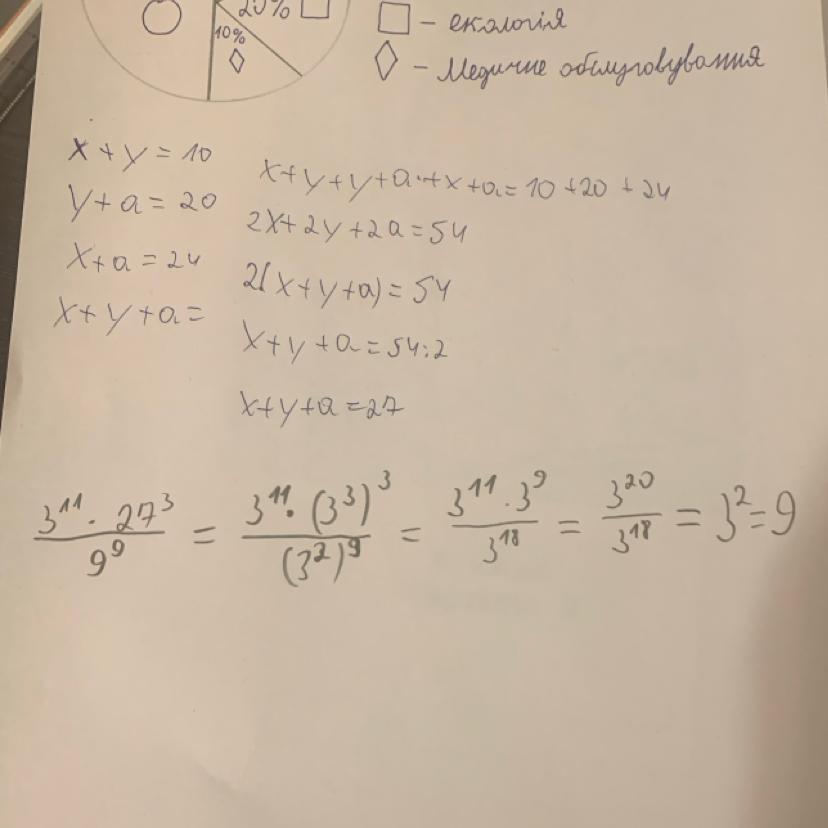 20%
10%
– екологія
– Медичне обслуговування
x + y = 10
y + a = 20
x + a = 24
x + y + a =
x + y + y + a + x + a = 10 + 20 + 24
2x + 2y + 2a = 54
2(x + y + a) = 54
x + y + a = 54:2
x + y + a = 27
3¹¹ · 27³ / 9⁹ = 3¹¹ · (3³)³ / (3²)⁹ = 3¹¹ · 3⁹ / 3¹⁸ = 3²⁰ / 3¹⁸ = 3² = 9